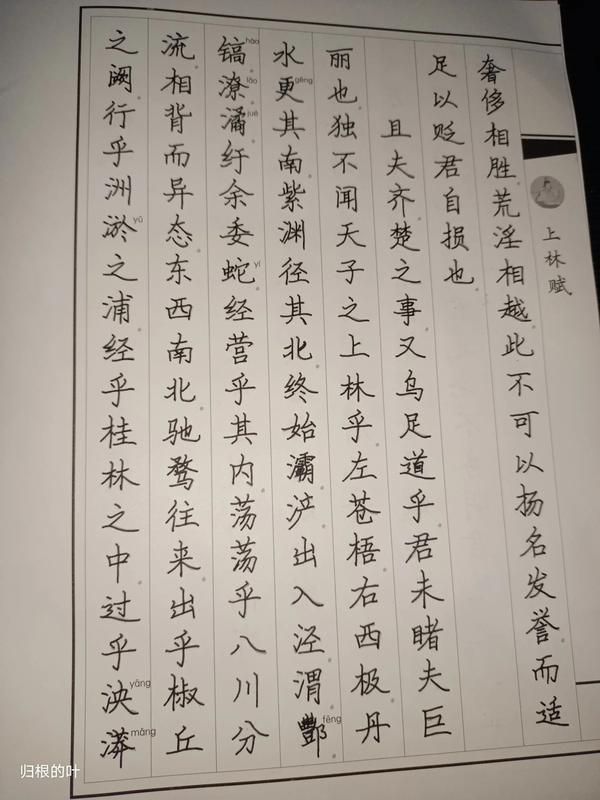 上林赋
奢侈相胜荒淫相越此不可以扬名发誉而适
足以贬君自损也
且夫齐楚之事又乌足道乎君未睹夫巨
丽也独不闻天子之上林乎左苍梧右西极丹
水更其南紫渊径其北终始灞浐出入泾渭酆
gēng
fēng
镐潦潏纡余委蛇经营乎其内荡荡乎八川分
hào
lǎo
jué
yí
流相背而异态东西南北驰骛往来出乎椒丘
之阙行乎洲淤之浦经乎桂林之中过乎泱漭
yū
yāng
mǎng
归根的叶